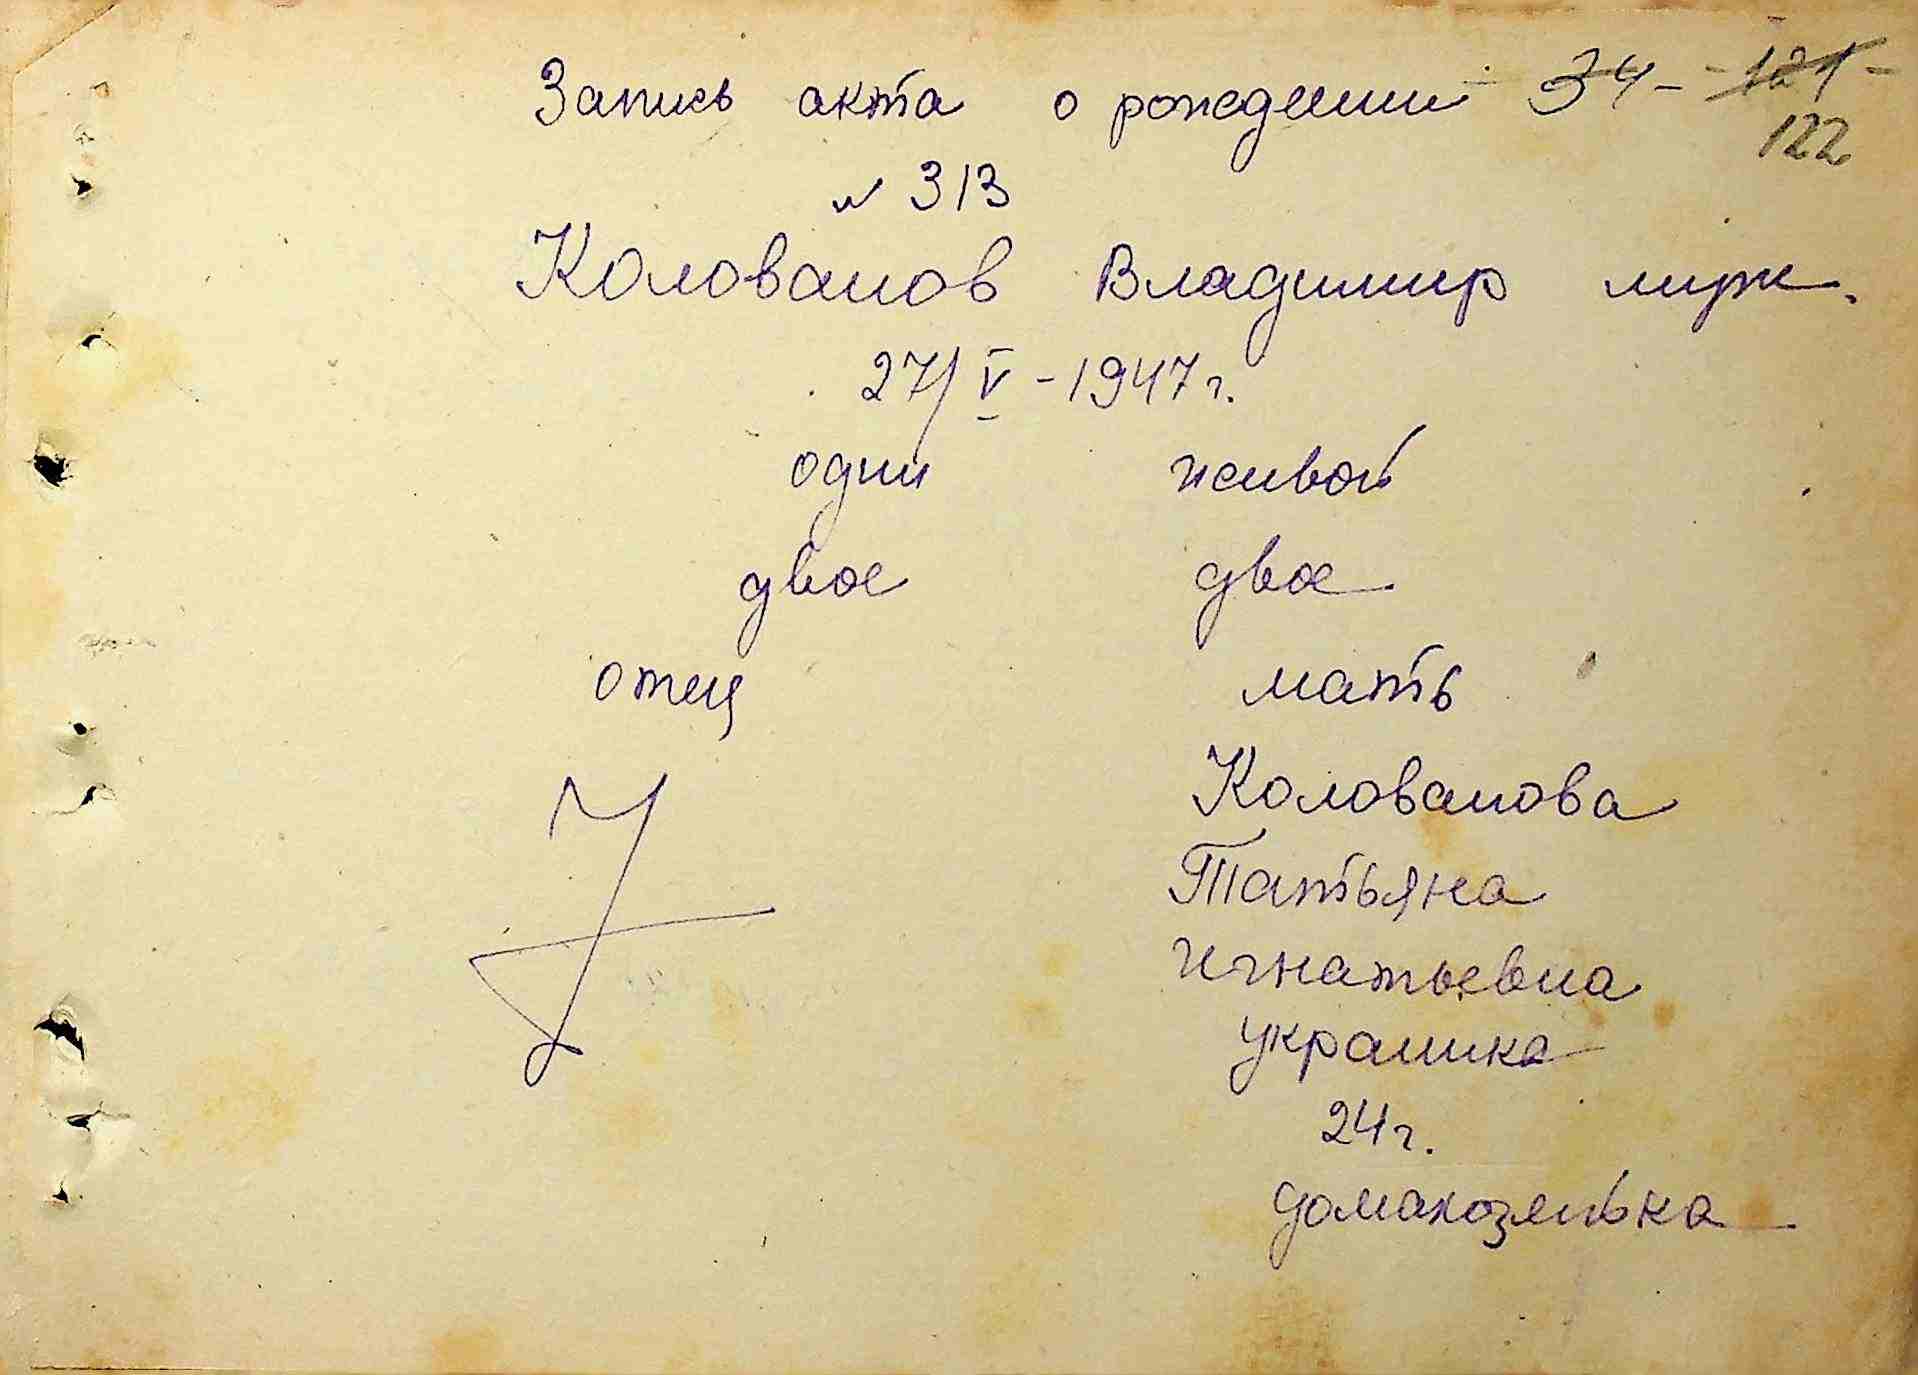 Запись акта о рождении 34- -121-
122
№ 313
Колованов Владимир муж.
27/V-1947г.
один живой
двое двое
отец мать
Колованова
Татьяна
Игнатьевна
украинка
24г.
домахозяйька